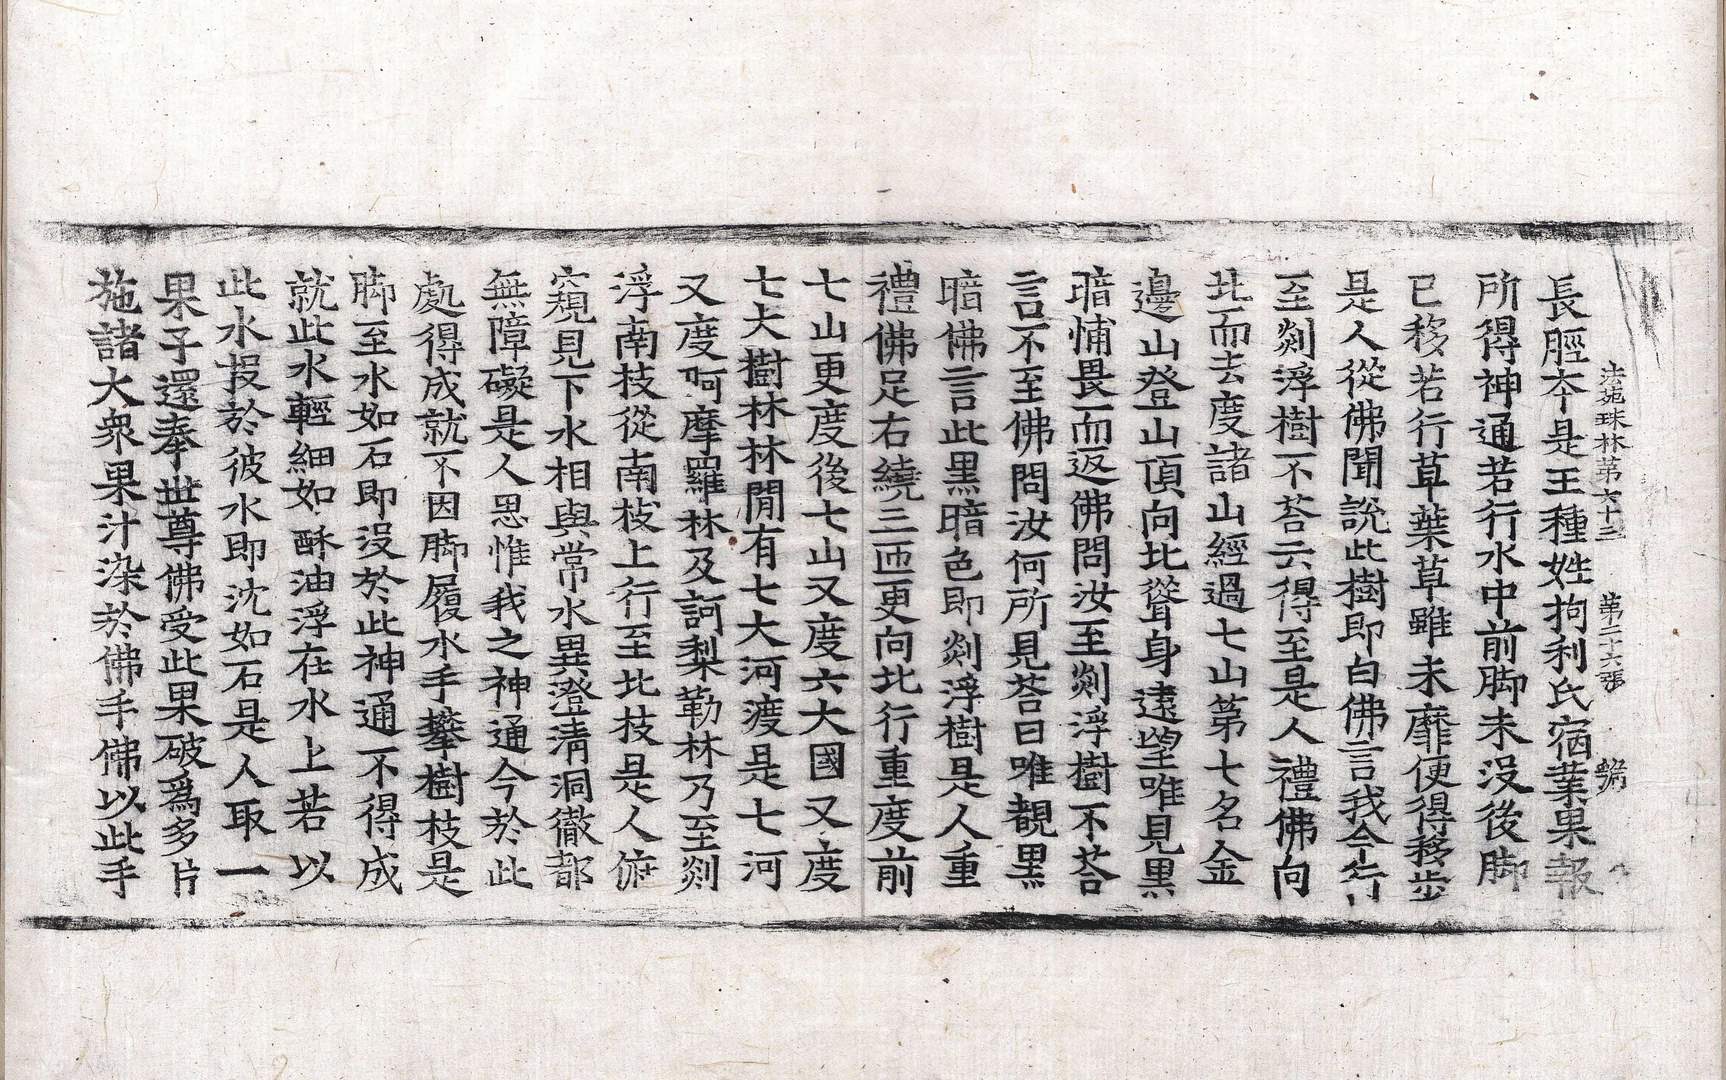 法苑珠林第六十三 第二十六張 號
長脛本是王種姓拘利氏宿業果報
所得神通若行水中前脚未没後脚
已移若行草葉草雖未靡便得移步
是人從佛聞說此樹即白佛言我今行
至剡浮樹不荅云得至是人禮佛向
北而去度諸山經過七山第七名金
邊山登山頂向北聳身遠望唯見黒
暗怖畏而返佛問汝至剡浮樹不荅
言不至佛問汝何所見荅曰唯覩黒
暗佛言此黒暗色即剡浮樹是人重
禮佛足右繞三帀更向北行重度前
七山更度後七山又度六大國又度
七大樹林林閒有七大河渡是七河
又度呵摩羅林及訶梨勒林乃至剡
浮南枝從南枝上行至北枝是人俯
窺見下水相與常水異澄清洞徹都
無障礙是人思惟我之神通今於此
處得成就不因脚履水手攀樹枝是
脚至水如石即没於此神通不得成
就此水輕細如酥油浮在水上若以
此水投於彼水即沈如石是人取一
果子還奉世尊佛受此果破爲多片
施諸大衆果汁染於佛手佛以此手